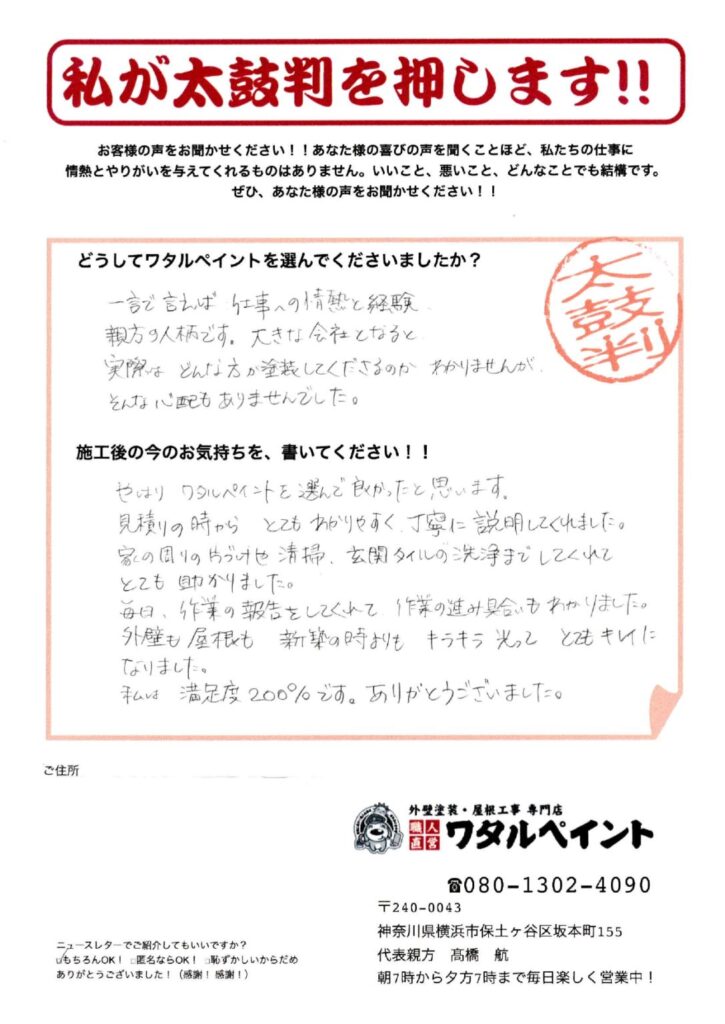 私が太鼓判を押します!!
お客様の声をお聞かせください！！あなた様の喜びの声を聞くことほど、私たちの仕事に
情熱とやりがいを与えてくれるものはありません。いいこと、悪いこと、どんなことでも結構です。
ぜひ、あなた様の声をお聞かせください！！
どうしてワタルペイントを選んでくださいましたか？
太鼓判
一言で言えば 仕事への情熱と経験、
親方の人柄です。大きな会社となると
実際は どんな方が塗装してくださるのか わかりませんが、
そんな心配もありませんでした。
施工後の今のお気持ちを、書いてください！！
やはり ワタルペイントを選んで良かったと思います。
見積りの時から とてもわかりやすく、丁寧に説明してくれました。
家の周りの片づけや清掃、玄関タイルの洗浄までしてくれて
とても助かりました。
毎日、作業の報告をしてくれて 作業の進み具合いもわかりました。
外壁も屋根も 新築の時よりも キラキラ光って とてもキレイに
なりました。
私は 満足度200%です。ありがとうございました。
ご住所
外壁塗装・屋根工事 専門店
職人直営 ワタルペイント
☎080-1302-4090
〒240-0043
神奈川県横浜市保土ヶ谷区坂本町155
代表親方 髙橋 航
朝7時から夕方7時まで毎日楽しく営業中！
ニュースレターでご紹介してもいいですか？
☑もちろんOK！ □匿名ならOK！ □恥ずかしいからだめ
ありがとうございました！（感謝！感謝！）